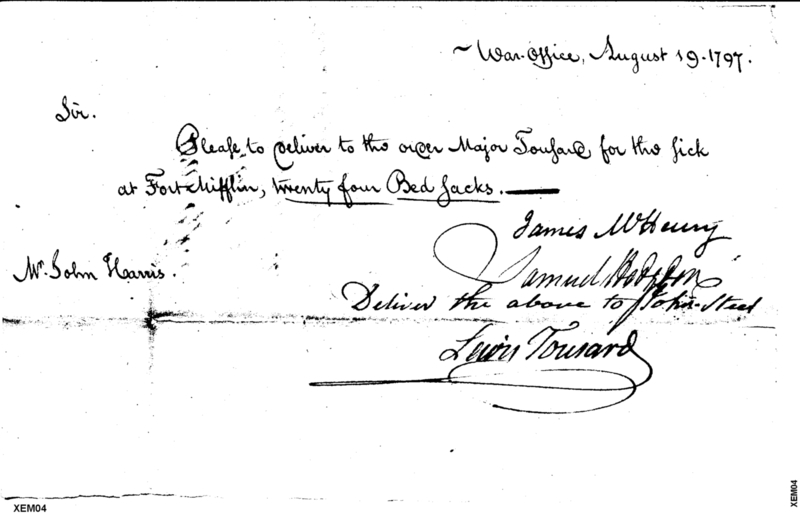 ~ War-Office, August 19. 1797.
Sir.
Please to deliver to the order Major Tousard for the sick
at Fort Mifflin, twenty four Bed Sacks.
James McHenry
Samuel Hodgdon
Mr. John Harris.
Deliver the above to John Steel
Lewis Tousard
XEM04
XEM04